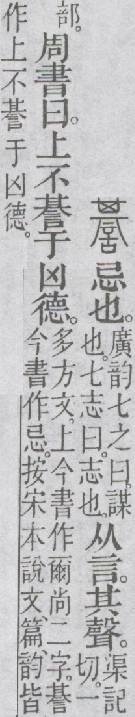 諅忌也。廣韵七之曰、謀也。七志曰。志也。从言。其聲。渠記切。一
部。周書曰。上不諅于凶德。多方文。上今書作爾尚二字。諅今書作忌。按宋本說文、篇、韵皆
作上不諅于凶德。